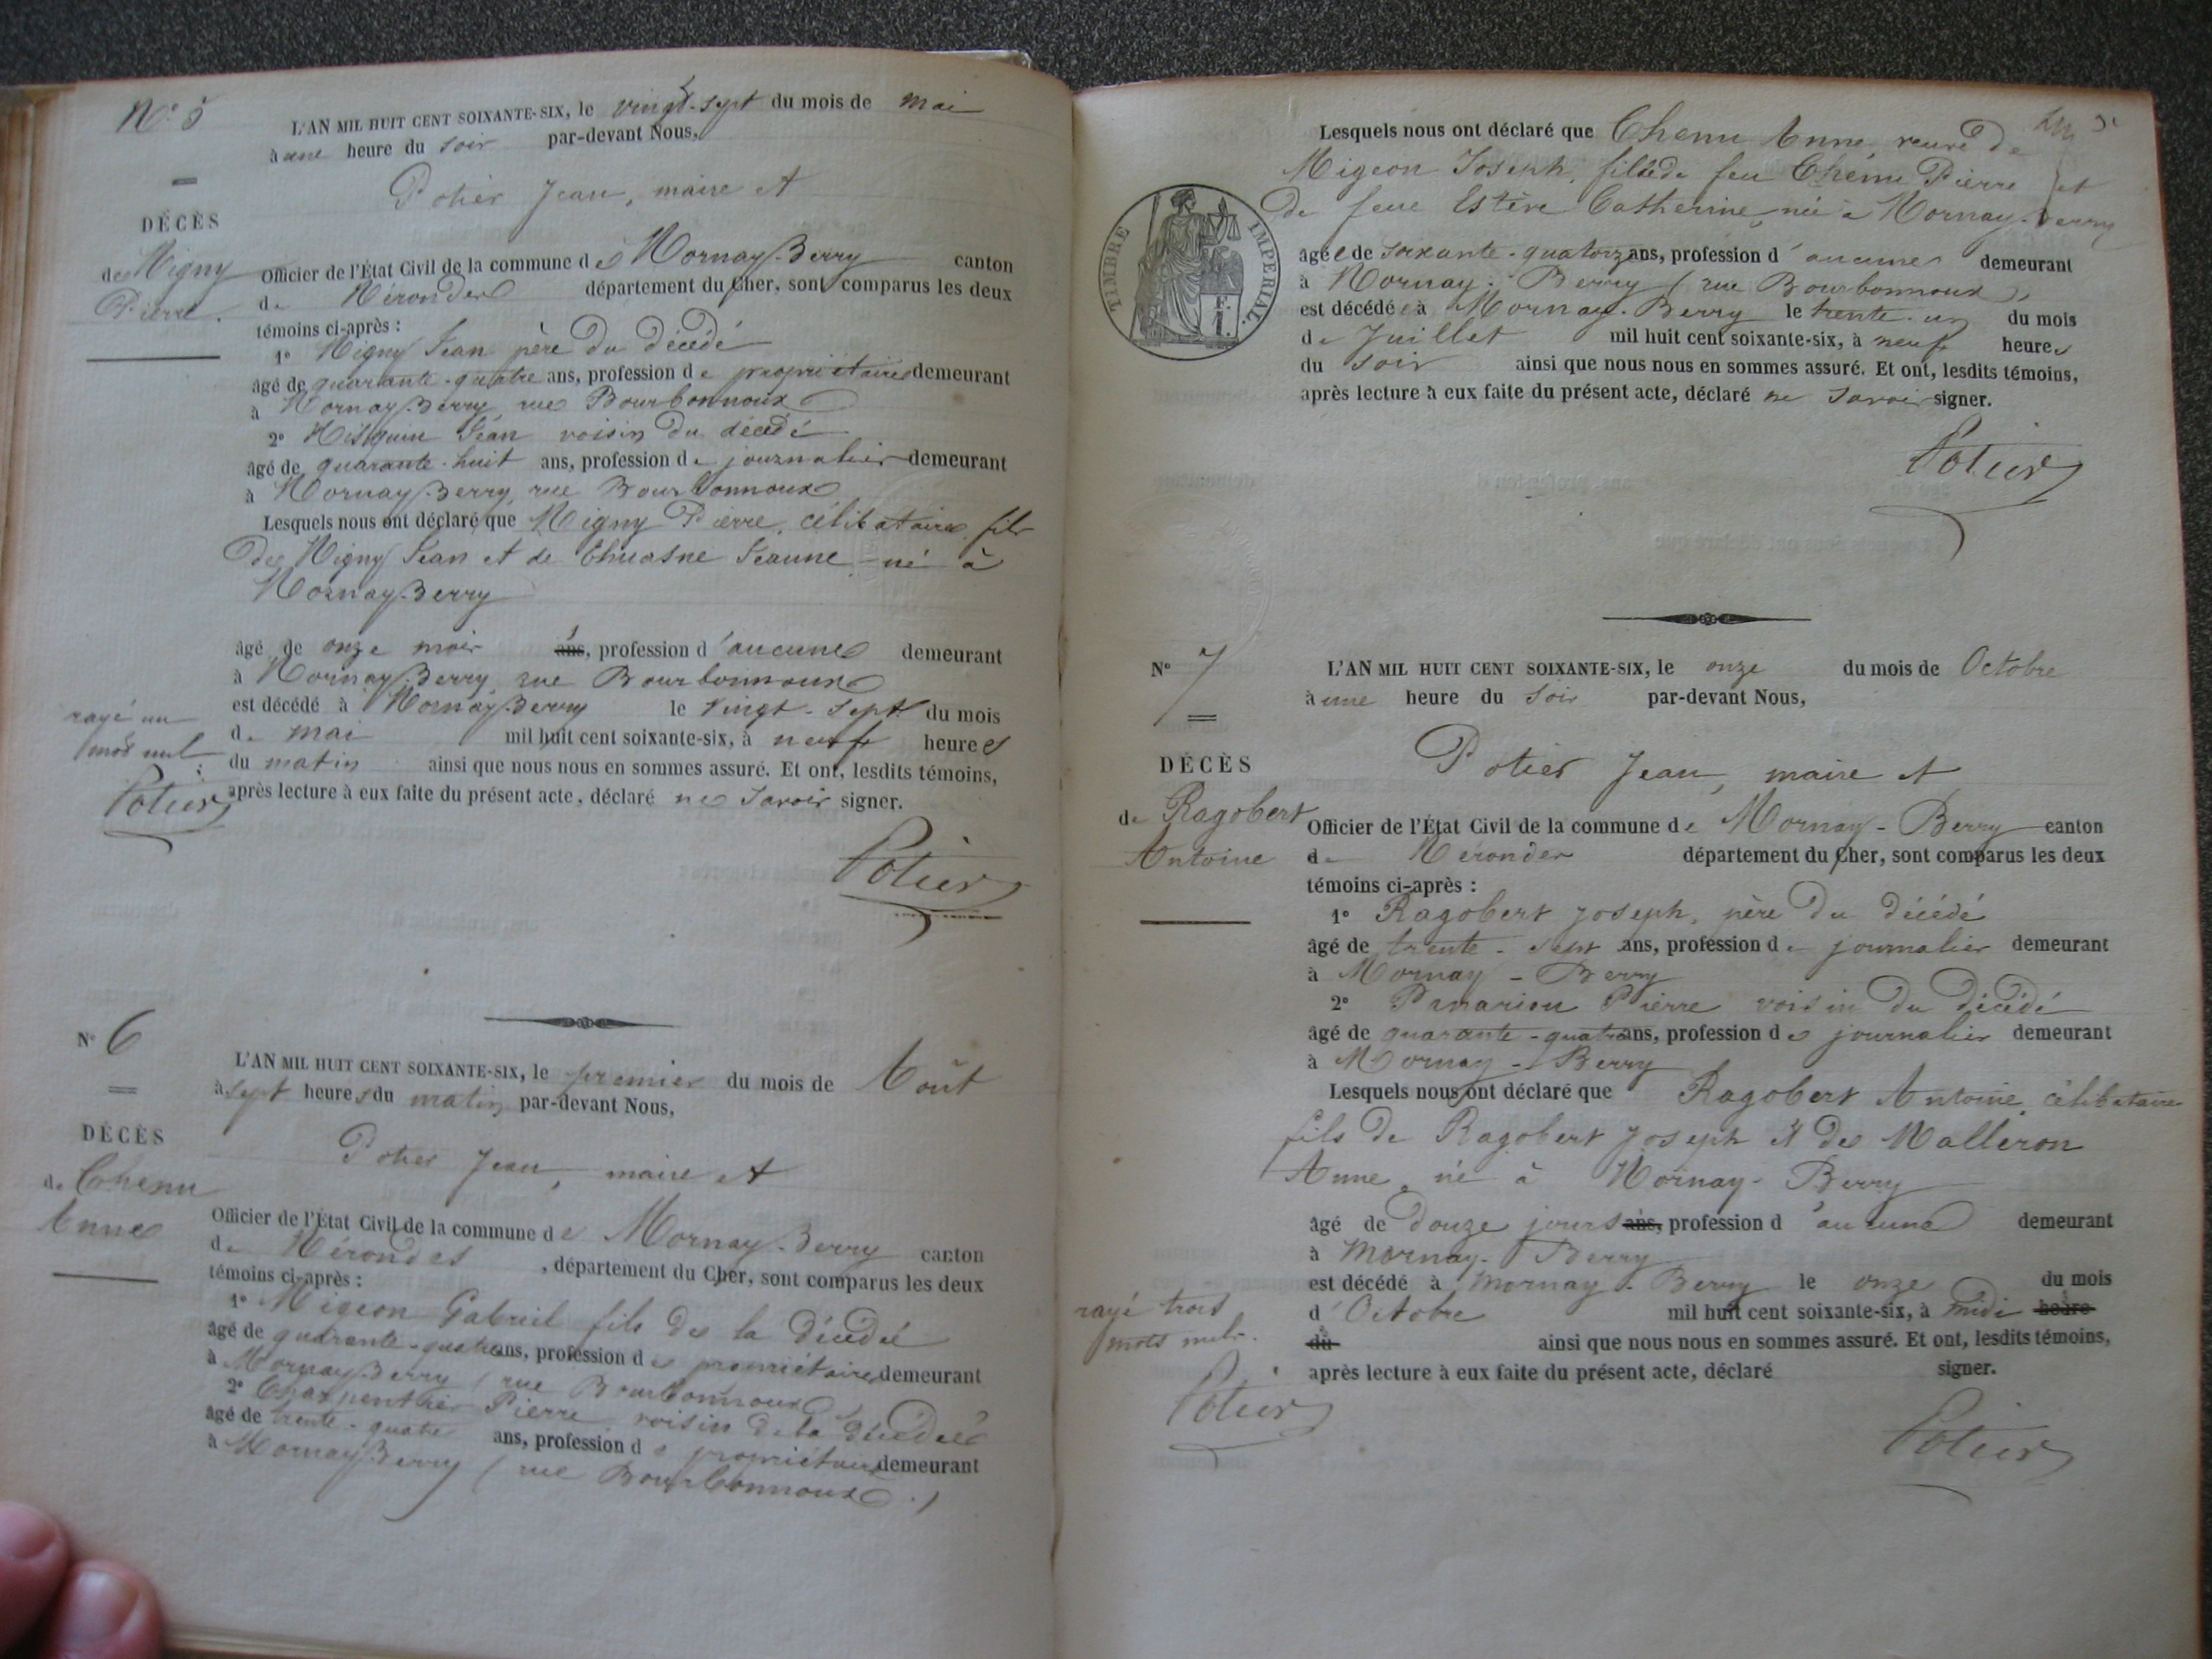 N° 5
L'AN MIL HUIT CENT SOIXANTE-SIX, le vingt-sept du mois de mai
à une heure du soir par-devant Nous,
Potier Jean, maire et
DÉCÈS
de Migny
Pierre.
Officier de l'État Civil de la commune de Mornay-Berry canton
de Nérondes département du Cher, sont comparus les deux
témoins ci-après :
1° Migny Jean père du décédé
âgé de quarante-quatre ans, profession de propriétaire demeurant
à Mornay-Berry rue Bourbonnoux
2° Jean voisin du décédé
âgé de quarante-huit ans, profession de journalier demeurant
à Mornay-Berry, rue Bourbonnoux
Lesquels nous ont déclaré que Migny Pierre, célibataire, fils
de Migny Jean et de Jeanne né à
Mornay-Berry
âgé de onze mois ans, profession d'aucune demeurant
à Mornay-Berry, rue Bourbonnoux
est décédé à Mornay-Berry le vingt-sept du mois
de mai mil huit cent soixante-six, à neuf heures
du matin ainsi que nous nous en sommes assuré. Et ont, lesdits témoins,
après lecture à eux faite du présent acte, déclaré ne savoir signer.
rayé un
mot nul
Potier
Potier
N° 6
L'AN MIL HUIT CENT SOIXANTE-SIX, le premier du mois de Août
à sept heures du matin par-devant Nous,
Potier Jean, maire et
DÉCÈS
de Chenu
Anne
Officier de l'État Civil de la commune de Mornay-Berry canton
de Nérondes, département du Cher, sont comparus les deux
témoins ci-après :
1° Migeon Gabriel fils de la décédée
âgé de quarante-quatre ans, profession de propriétaire demeurant
à Mornay-Berry (rue Bourbonnoux)
2° Charpentier Pierre voisin de la décédée
âgé de trente-quatre ans, profession de propriétaire demeurant
à Mornay-Berry (rue Bourbonnoux.)
Lesquels nous ont déclaré que Chenu Anne, veuve de
Migeon Joseph, fille de feu Chenu Pierre et
de feue Estève Catherine, née à Mornay-Berry
TIMBRE IMPERIAL.
âgée de soixante-quatorze ans, profession d'aucune demeurant
à Mornay-Berry (rue Bourbonnoux),
est décédée à Mornay-Berry le trente-un du mois
de Juillet mil huit cent soixante-six, à neuf heures
du soir ainsi que nous nous en sommes assuré. Et ont, lesdits témoins,
après lecture à eux faite du présent acte, déclaré ne savoir signer.
Potier
N° 7
L'AN MIL HUIT CENT SOIXANTE-SIX, le onze du mois de Octobre
à une heure du soir par-devant Nous,
Potier Jean, maire et
DÉCÈS
de Ragobert
Antoine
Officier de l'État Civil de la commune de Mornay-Berry canton
de Nérondes département du Cher, sont comparus les deux
témoins ci-après :
1° Ragobert Joseph, père du décédé
âgé de trente-sept ans, profession de journalier demeurant
à Mornay-Berry
2° Panariou Pierre voisin du décédé
âgé de quarante-quatre ans, profession de journalier demeurant
à Mornay-Berry
Lesquels nous ont déclaré que Ragobert Antoine, célibataire
fils de Ragobert Joseph et de Malleron
Anne, né à Mornay-Berry
âgé de douze jours ans, profession d'aucune demeurant
à Mornay-Berry
est décédé à Mornay-Berry le onze du mois
d'Octobre mil huit cent soixante-six, à midi heure
du ainsi que nous nous en sommes assuré. Et ont, lesdits témoins,
après lecture à eux faite du présent acte, déclaré signer.
rayé trois
mots nuls.
Potier
Potier